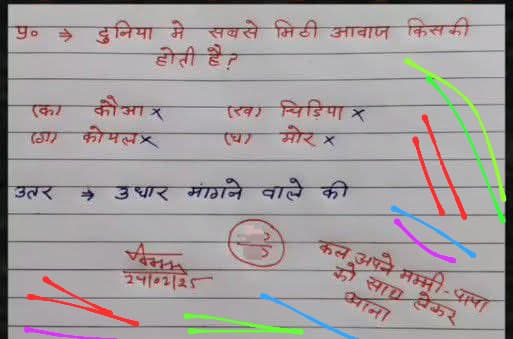 प्र० ⇒ दुनिया मे सबसे मिठी आवाज किसकी
होती है?
(क) कौआ x (ख) चिड़िया x
(ग) कोयल x (घ) मोर x
उतर ⇒ उधार मांगने वाले की
24/02/25
कल अपने मम्मी-पापा
को साथ लेकर
आना